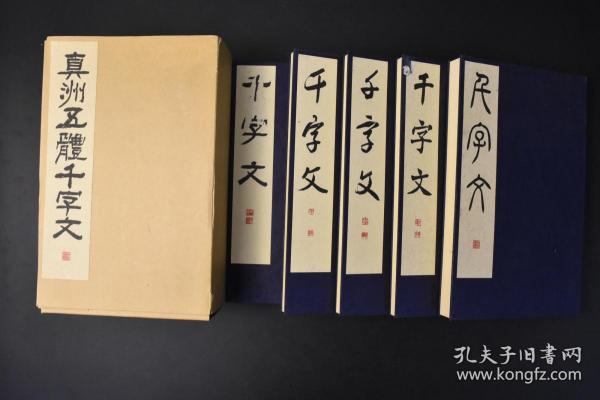 真洲五體千字文
千字文
千字文
千字文
千字文
千字文
孔夫子旧书网
www.kongfz.com